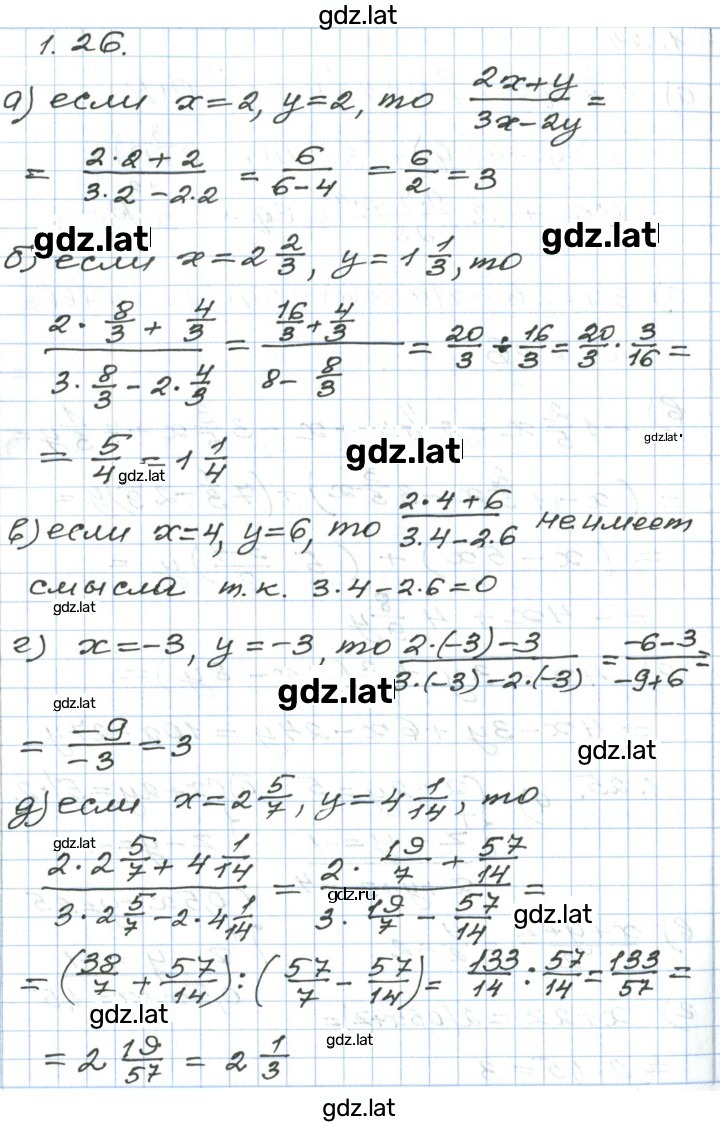 gdz.lat
1.26.
а) если x=2, y=2, то (2x+y)/(3x−2y) =
= (2·2+2)/(3·2−2·2) = 6/(6−4) = 6/2 = 3
gdz.lat gdz.lat
б) если x=2 2/3, y=1 1/3, то
(2·8/3 + 4/3)/(3·8/3 − 2·4/3) = (16/3 + 4/3)/(8 − 8/3) = 20/3 ÷ 16/3 = 20/3 · 3/16 =
= 5/4 = 1 1/4 gdz.lat gdz.lat gdz.lat
в) если x=4, y=6, то (2·4+6)/(3·4−2·6) не имеет
смысла т.к. 3·4−2·6=0
gdz.lat
г) x=−3, y=−3, то (2·(−3)−3)/(3·(−3)−2·(−3)) = (−6−3)/(−9+6) =
gdz.lat gdz.lat
= −9/−3 = 3 gdz.lat
д) если x=2 5/7, y=4 1/14, то
gdz.lat
(2·2 5/7 + 4 1/14)/(3·2 5/7 − 2·4 1/14) = (2·19/7 + 57/14)/(3·19/7 − 57/14) =
gdz.ru gdz.lat
= (38/7 + 57/14) : (57/7 − 57/14) = 133/14 : 57/14 = 133/57 =
gdz.lat
= 2 19/57 = 2 1/3 gdz.lat
gdz.lat